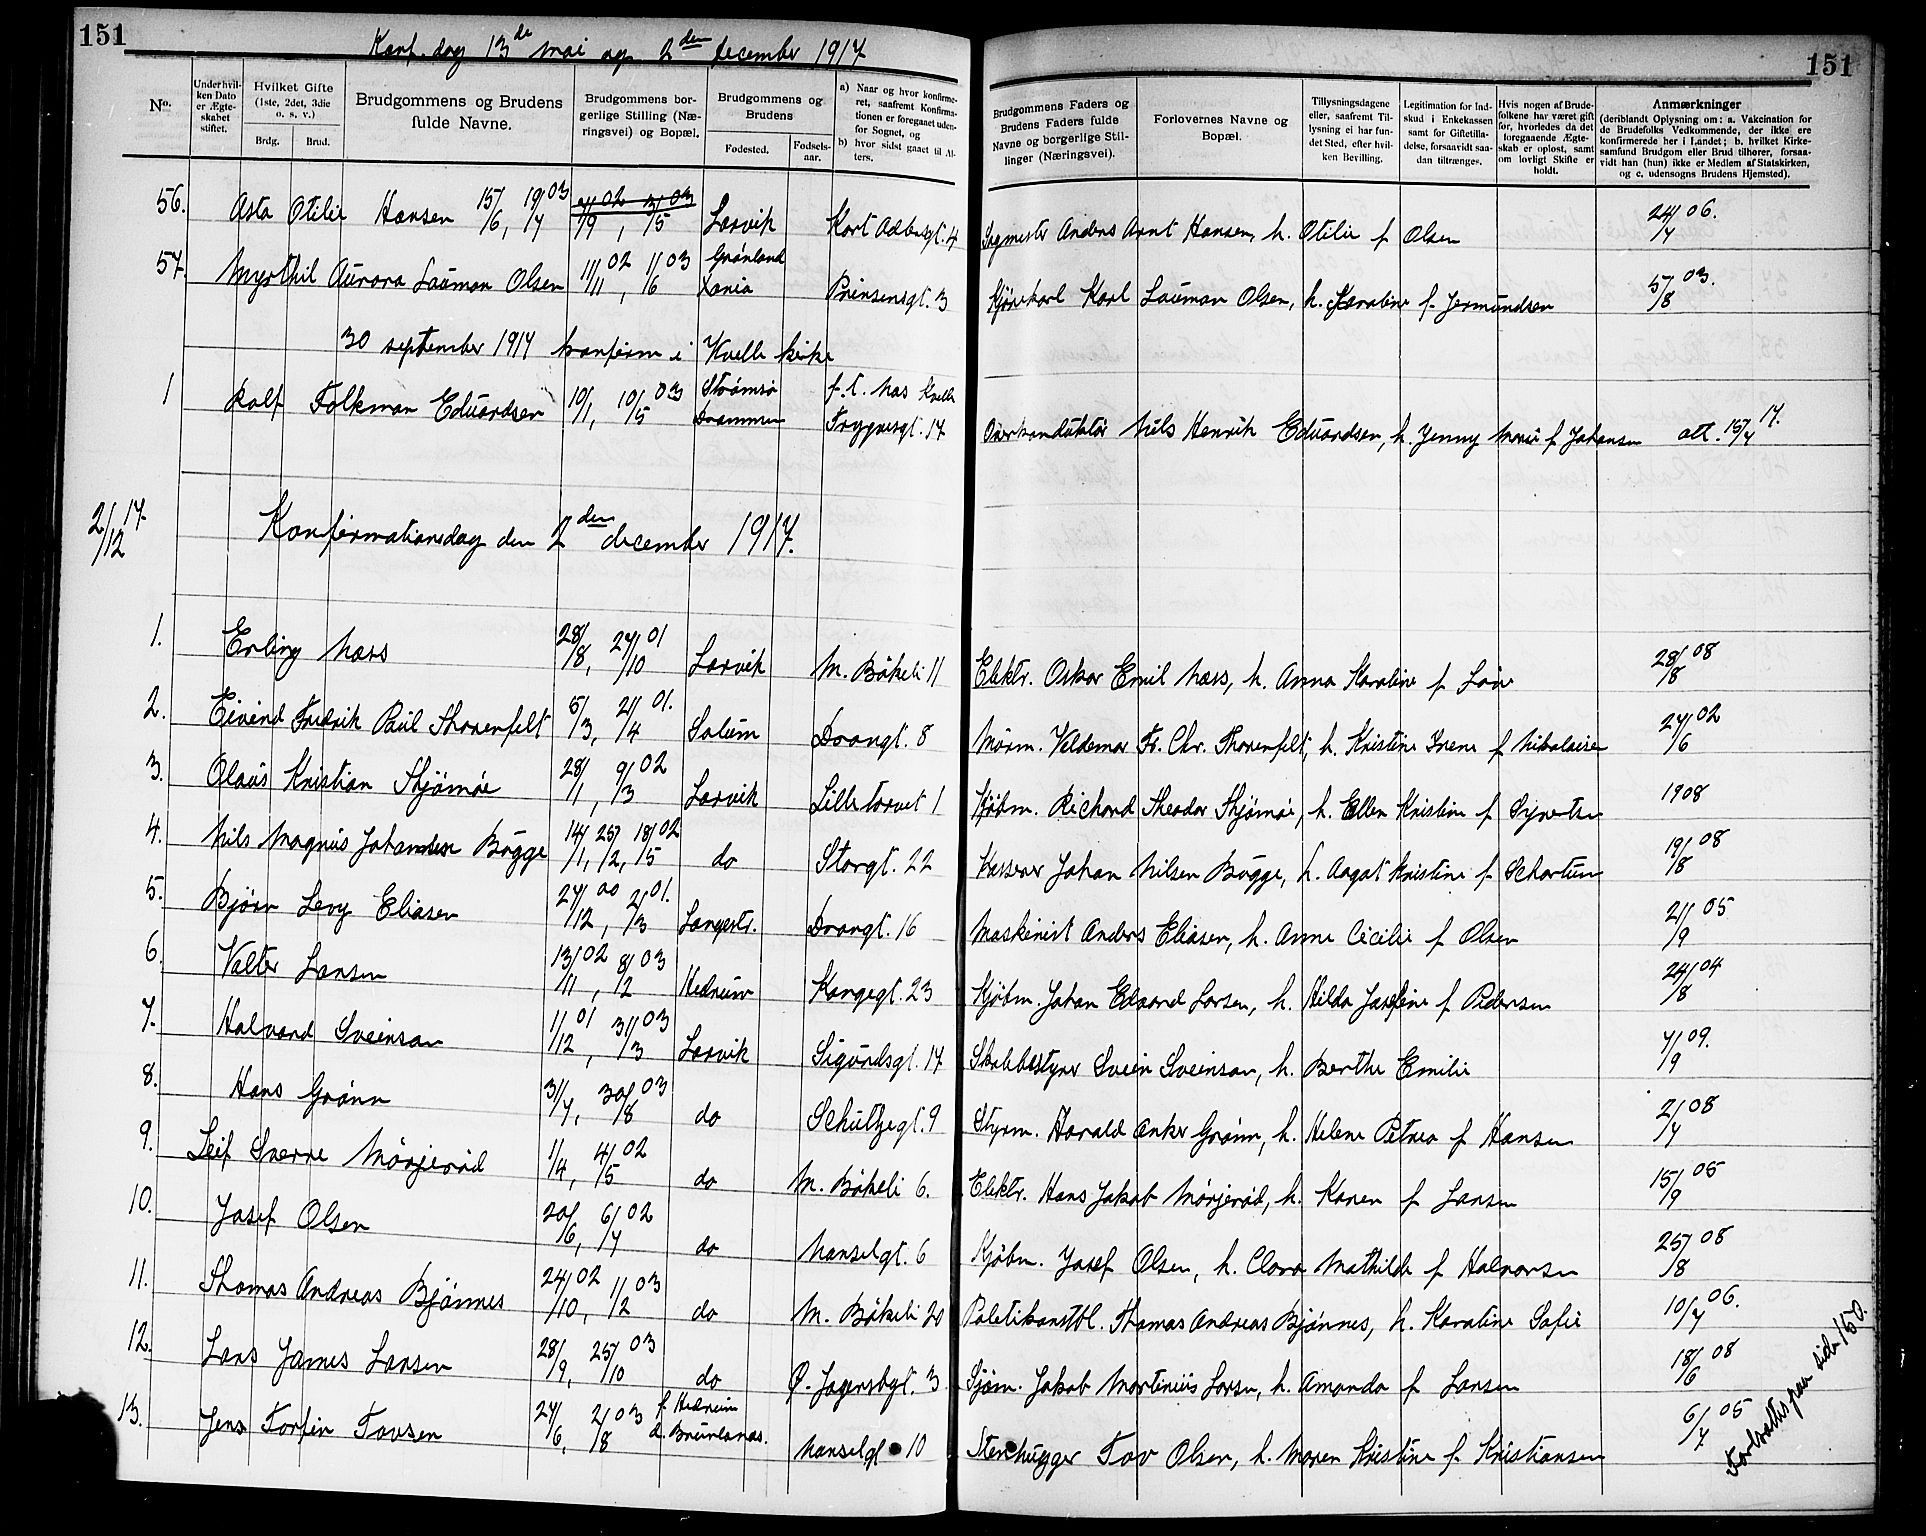 151
Konf. dag 13de mai og 2den december 1917
151
No.
Under hvilken Dato er Ægteskabet stiftet.
Hvilket Gifte (1ste, 2det, 3die o. s. v.)
Brdg.
Brud.
Brudgommens og Brudens fulde Navne.
Brudgommens borgerlige Stilling (Næringsvei) og Bopæl.
Brudgommens og Brudens
Fødested.
Fødselsaar.
a) Naar og hvor konfirmeret, saafremt Konfirmationen er foregaaet udenfor Sognet, og
b) hvor sidst gaaet til Alters.
Brudgommens Faders og Brudens Faders fulde Navne og borgerlige Stillinger (Næringsvei).
Forlovernes Navne og Bopæl.
Tillysningsdagene eller, saafremt Tillysning ei har fundet Sted, efter hvilken Bevilling.
Legitimation for Indskud i Enkekassen samt for Giftetilladelse, forsaavidt saadan tiltrænges.
Hvis nogen af Brudefolkene har været gift før, hvorledes da det foregaaende Ægteskab er opløst, samt om lovligt Skifte er holdt.
Anmærkninger
(deriblandt Oplysning om: a. Vakcination for de Brudefolks Vedkommende, der ikke ere konfirmerede her i Landet; b. hvilket Kirkesamfund Brudgom eller Brud tilhører, forsaavidt han (hun) ikke er Medlem af Statskirken, og c. udensogns Brudens Hjemsted).
56. Asta Otilie Hansen 15/6, 19/7 03 Larvik Kort Adelersgt. 4 Sagmester Anders Arnt Hansen, h. Otilie f Olsen 24/7 06.
57. Myrthil Aurora Lauman Olsen 11/11 02, 1/6 03 Grønland Xania Prinsensgt. 3 Kjørekarl Karl Lauman Olsen, h. Karoline f. Jermundsen 5/8 03.
30 september 1917 konfirm i Kvelle kirke
1 Rolf Folkman Eduardsen 10/1, 10/5 03 Strømsø Drammen f. t. Nes Kvelle Trygvesgt. 17 Overkonduktør Nils Henrik Eduardsen, h. Jenny Marie f Johansen att. 15/4 17.
2/12 17. Konfirmationsdag den 2den december 1917.
1. Erling Næss 28/8, 27/10 01 Larvik M. Bøkeli 11 Elektr. Oskar Emil Næss, h. Anna Karoline f Løve 28/8 08
2. Eivind Fredrik Paul Thorenfelt 5/3, 21/4 01. Solum Drongt. 8 Mørm. Valdemar Fr. Chr. Thorenfelt, h. Kristine Irene f Nikolaisen 27/6 02
3. Olaus Kristian Skjømøe 28/1, 9/3 02 Larvik Lilletorvet 1 Kjøbm. Richard Theodor Skjømøe, h. Ellen Kristine f Syvertsen 1908
4. Nils Magnus Johannsen Bugge 14/1, 25/2, 18/5 02 do Storgt. 22 Kasserer Johan Nilsen Bugge, h. Aagot Kristine f Schartum 19/8 08
5. Bjørn Levy Eliasen 27/12 00, 2/3 01. Langestr. Drongt. 16 Maskinist Anders Eliasen, h. Anne Cicilie f Olsen 21/9 05
6. Valter Larsen 13/11 02, 8/2 03 Hedrum Kongegt. 23 Kjøbm. Johan Edvard Larsen, h. Hilda Josefine f Pedersen 24/8 04
7. Halvard Sveinson 1/12 01, 31/3 03 Larvik Sigurdsgt. 17 Skolebestyrer Svein Sveinson, h. Berthe Emilie 7/9 09.
8. Hans Grønn 31/7, 30/8 03 do Schultzegt. 9 Styrm. Harald Anker Grønn, h. Helene Petrea f Hansen 2/7 08
9. Leif Sverre Mørjerød 1/4, 4/5 02 do M. Bøkeli 6. Elektr. Hans Jakob Mørjerød, h. Karen f Larsen 15/9 05
10. Josef Olsen 20/6, 6/7 02 do Nanselgt. 6 Kjøbm. Josef Olsen, h. Clara Mathilde f Halvorsen 25/8 08
11. Thomas Andreas Bjønnes 24/10 02, 11/2 03 do M. Bøkeli 20 Politikonstbl. Thomas Andreas Bjønnes, h. Karoline Sofie 10/7 06.
12. Lars James Larsen 28/9, 25/10 03 do Ø. Jegersbgt. 3 Sjøm. Jakob Martinius Larsen, h. Amanda f Larsen 18/6 08
13. Jens Torfin Tovsen 27/6, 2/8 03 f. Hedrum d. Brunlanes. Nanselgt 10 Stenhugger Tov Olsen, h. Maren Kristine f. Kristiansen 6/7 05
Fortsættes paa side 150.